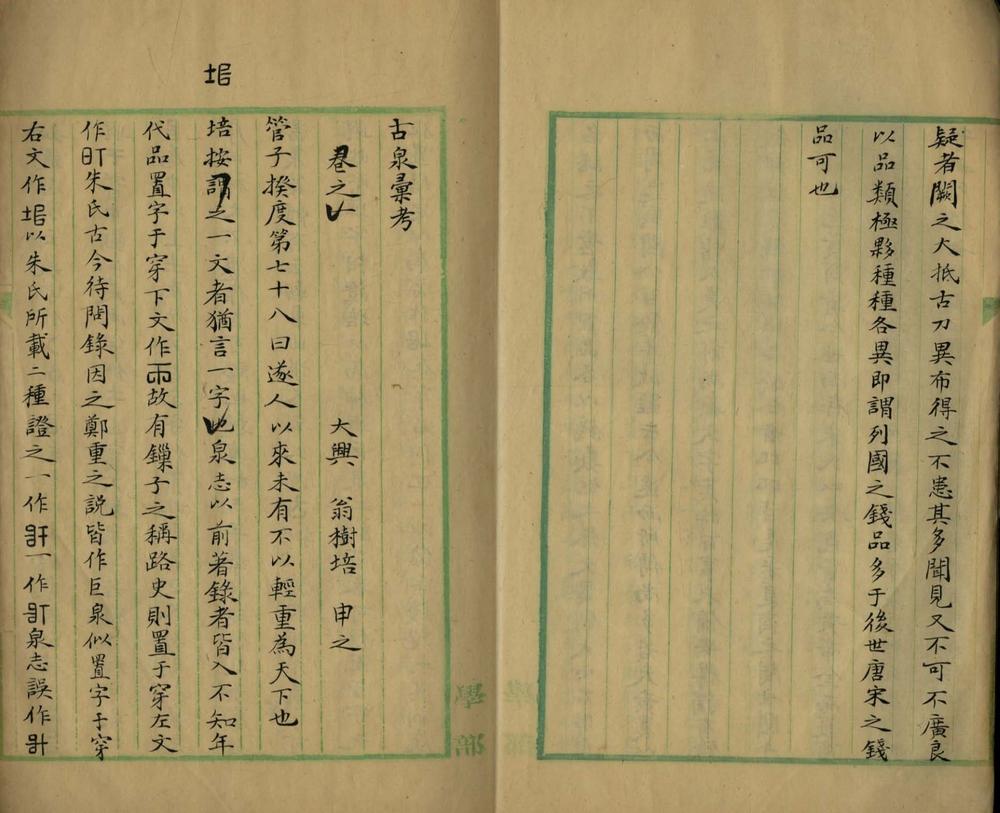 疑者闕之大抵古刀異布得之不患其多聞見又不可不廣良
以品類極夥種種各異即謂列國之錢品多于後世唐宋之錢
品可也
古泉彙考
卷之一
大興 翁樹培 申之
管子揆度第七十八曰遂人以來未有不以輕重為天下也
培按謂之一文者猶言一字也泉志以前著錄者皆入不知年
代品置字于穿下文作故有鏁子之稱路史則置于穿左文
作朱氏古今待問錄因之鄭重之說皆作巨泉似置字于穿
右文作以朱氏所載二種證之一作一作泉志誤作